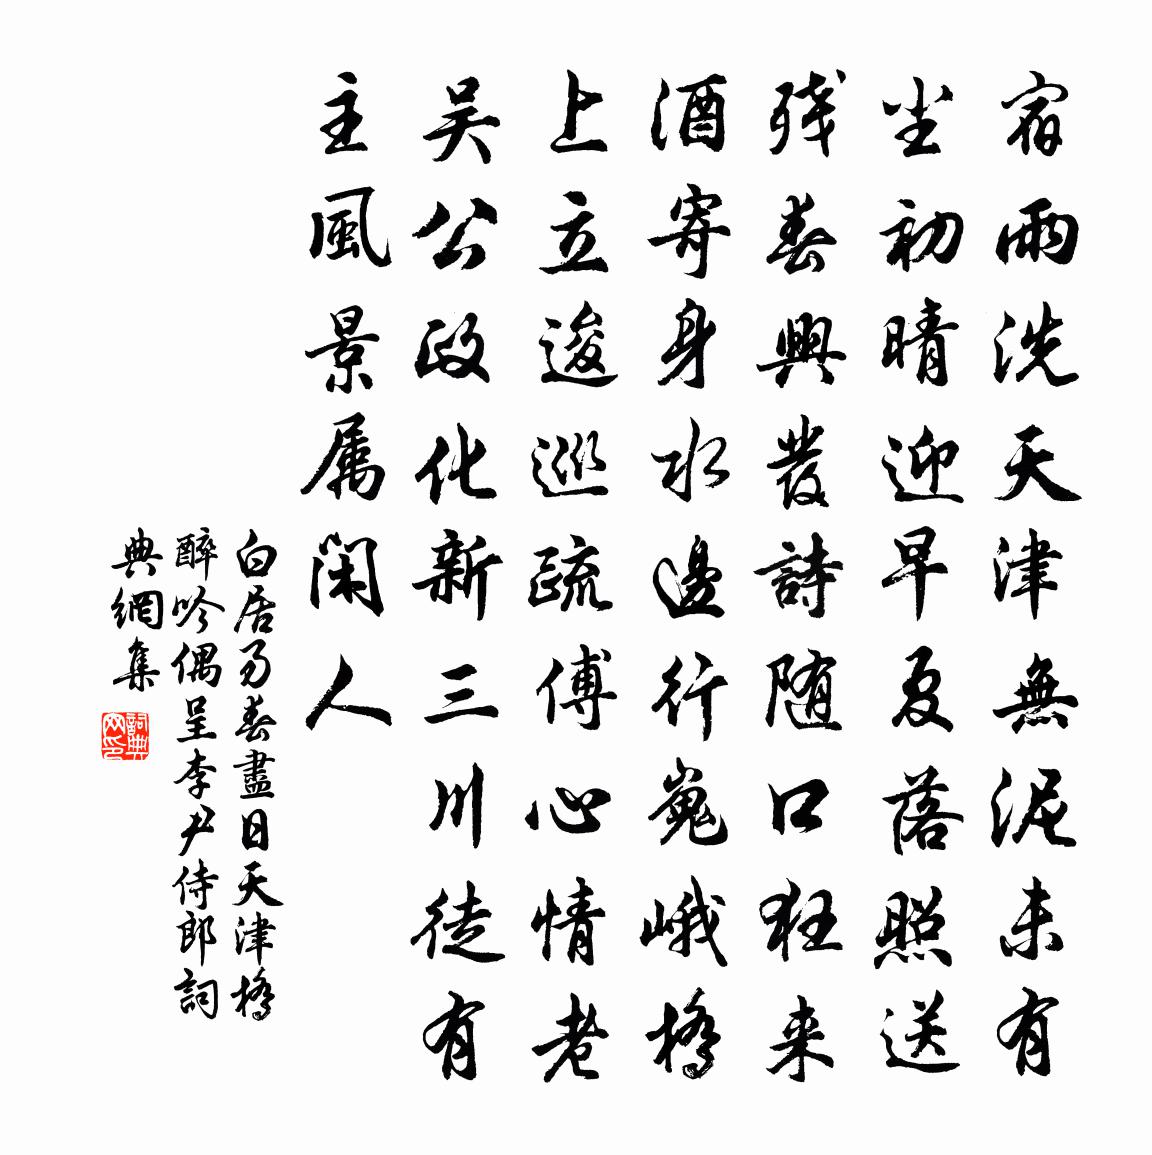 宿雨洗天津無泥未有
尘初晴迎早夏落照送
残春興發詩随口狂来
酒寄身水邊行嵬峨橋
上立逡巡疏傅心情老
吴公政化新三川徒有
主風景属闲人
白居易春盡日天津橋
醉吟偶呈李尹侍郎詞
典網集
詞典网印